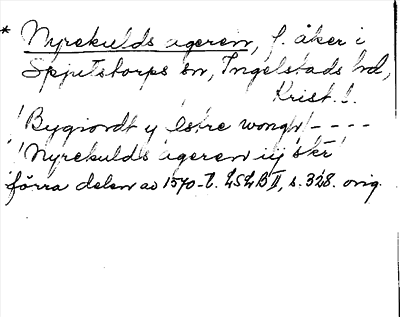 * Nyrekulds ageren, f. åker i
Spjutstorps sn, Ingelstads hd,
Krist. l.
"Bygiordt y Estre wongh" - - - -
"Nyrekulds ageren iij skr"
förra delen av 1570-t. LSLB II, s. 328. orig.